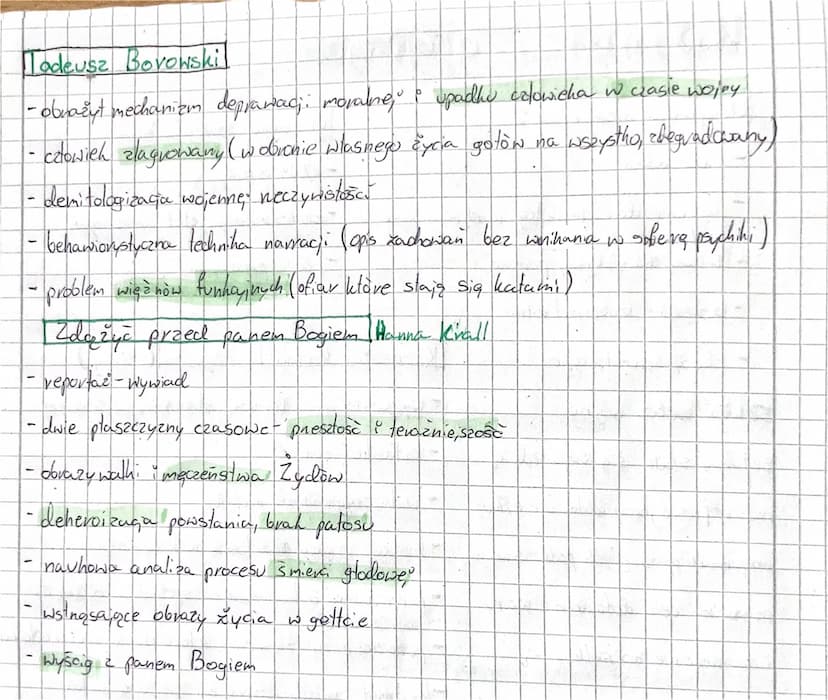 Tadeusz Borowski
- obnażył mechanizm deprawacji moralnej i upadku człowieka w czasie wojny
- człowiek zlagrowany (w obronie własnego życia gotów na wszystko, zbegradowany)
- demitologizacja wojennej rzeczywistości
- behawiorystyczna technika narracji (opis zachowań bez wnikania w sferę psychiki)
- problem więźniów funkcyjnych (ofiar które stają się katami)
Zdążyć przed panem Bogiem Hanna Krall
- reportaż - wywiad
- dwie płaszczyzny czasowe - przeszłość i teraźniejszość
- obrazy walki i męczeństwa Żydów
- deheroizacja powstania, brak patosu
- naukowa analiza procesu śmierci głodowej
- wstrząsające obrazy życia w getcie
- wyścig z panem Bogiem